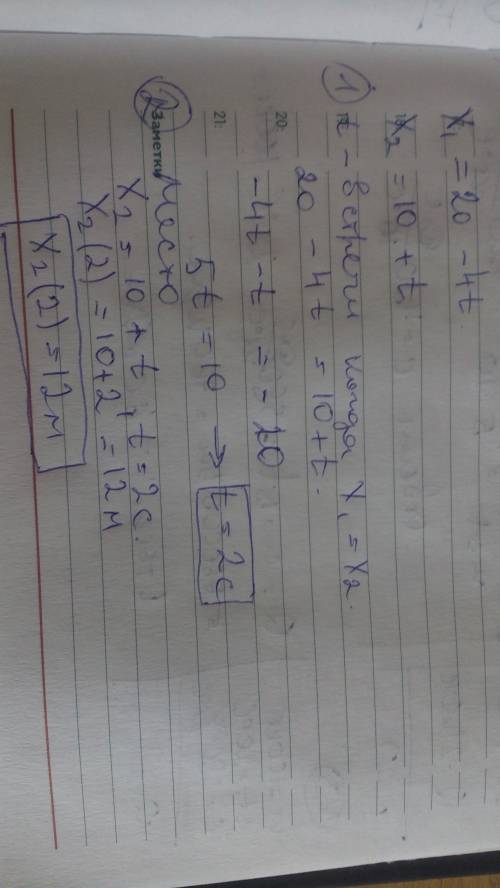 x₁ = 20 - 4t
18: x₂ = 10 + t
① 19: t - встречи когда x₁ = x₂.
20 - 4t = 10 + t.
20: -4t - t = -10
21: 5t = 10 → t = 2c
② Заметки Место
x₂ = 10 + t, t = 2c.
x₂(2) = 10+2 = 12м
x₂(2) = 12м